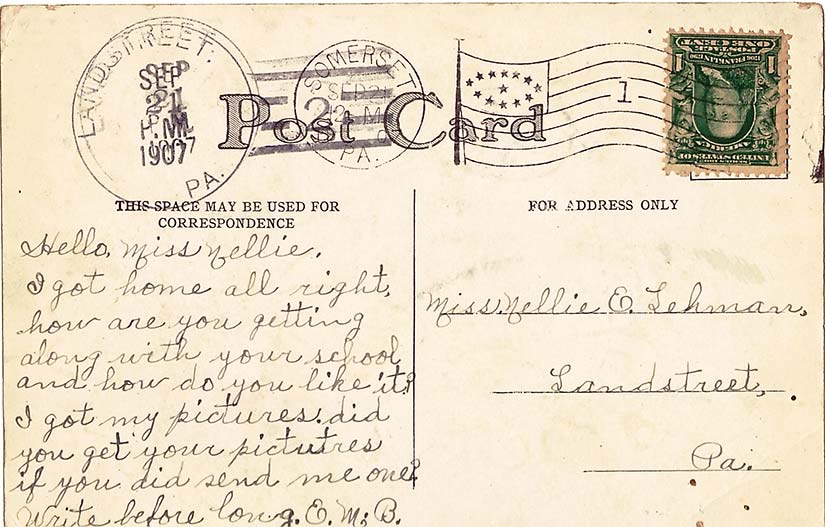 LANDSTREET.
SEP
21
P.M.
1907
PA.
SOMERSET
SEP 21
2
PA.
1
Post Card
ONE CENT
POSTAGE
1
1
THIS SPACE MAY BE USED FOR
CORRESPONDENCE
Hello, Miss Nellie.
I got home all right,
how are you getting
along with your school
and how do you like it?
I got my pictures. did
you get your pictutres
if you did send me one?
Write before long. E. M. B.
FOR ADDRESS ONLY
Miss. Nellie E. Lehman,
Landstreet,
Pa.